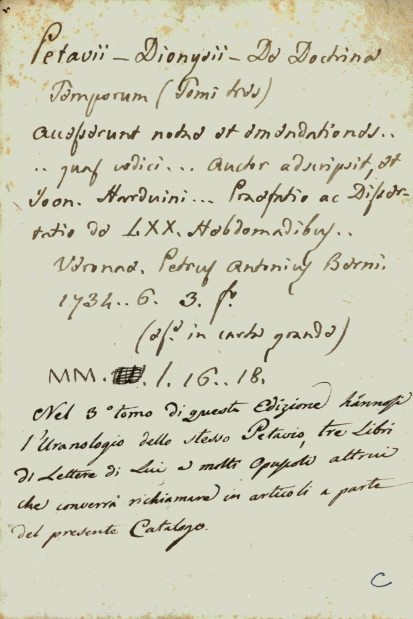 Petavii – Dionysii – De Doctrina
Temporum (Tomi tres)
accesserunt notae et emendationes..
.. quas codici... Auctor adscripsit, et
Joan. Harduini... Praefatio ac Disser-
tatio de LXX. Hebdomadibus..
Veronae. Petrus Antonius Berni.
1734.. 6. 3. fo.
(es. in carta grande)
MM. . l. 16..18.
Nel 3º tomo di questa Edizione hannosi
l'Uranologio dello stesso Petavio, tre Libri
di Lettere di Lui e molti Opuscoli altrui
che converrà richiamare in articoli a parte
del presente Catalogo.
C